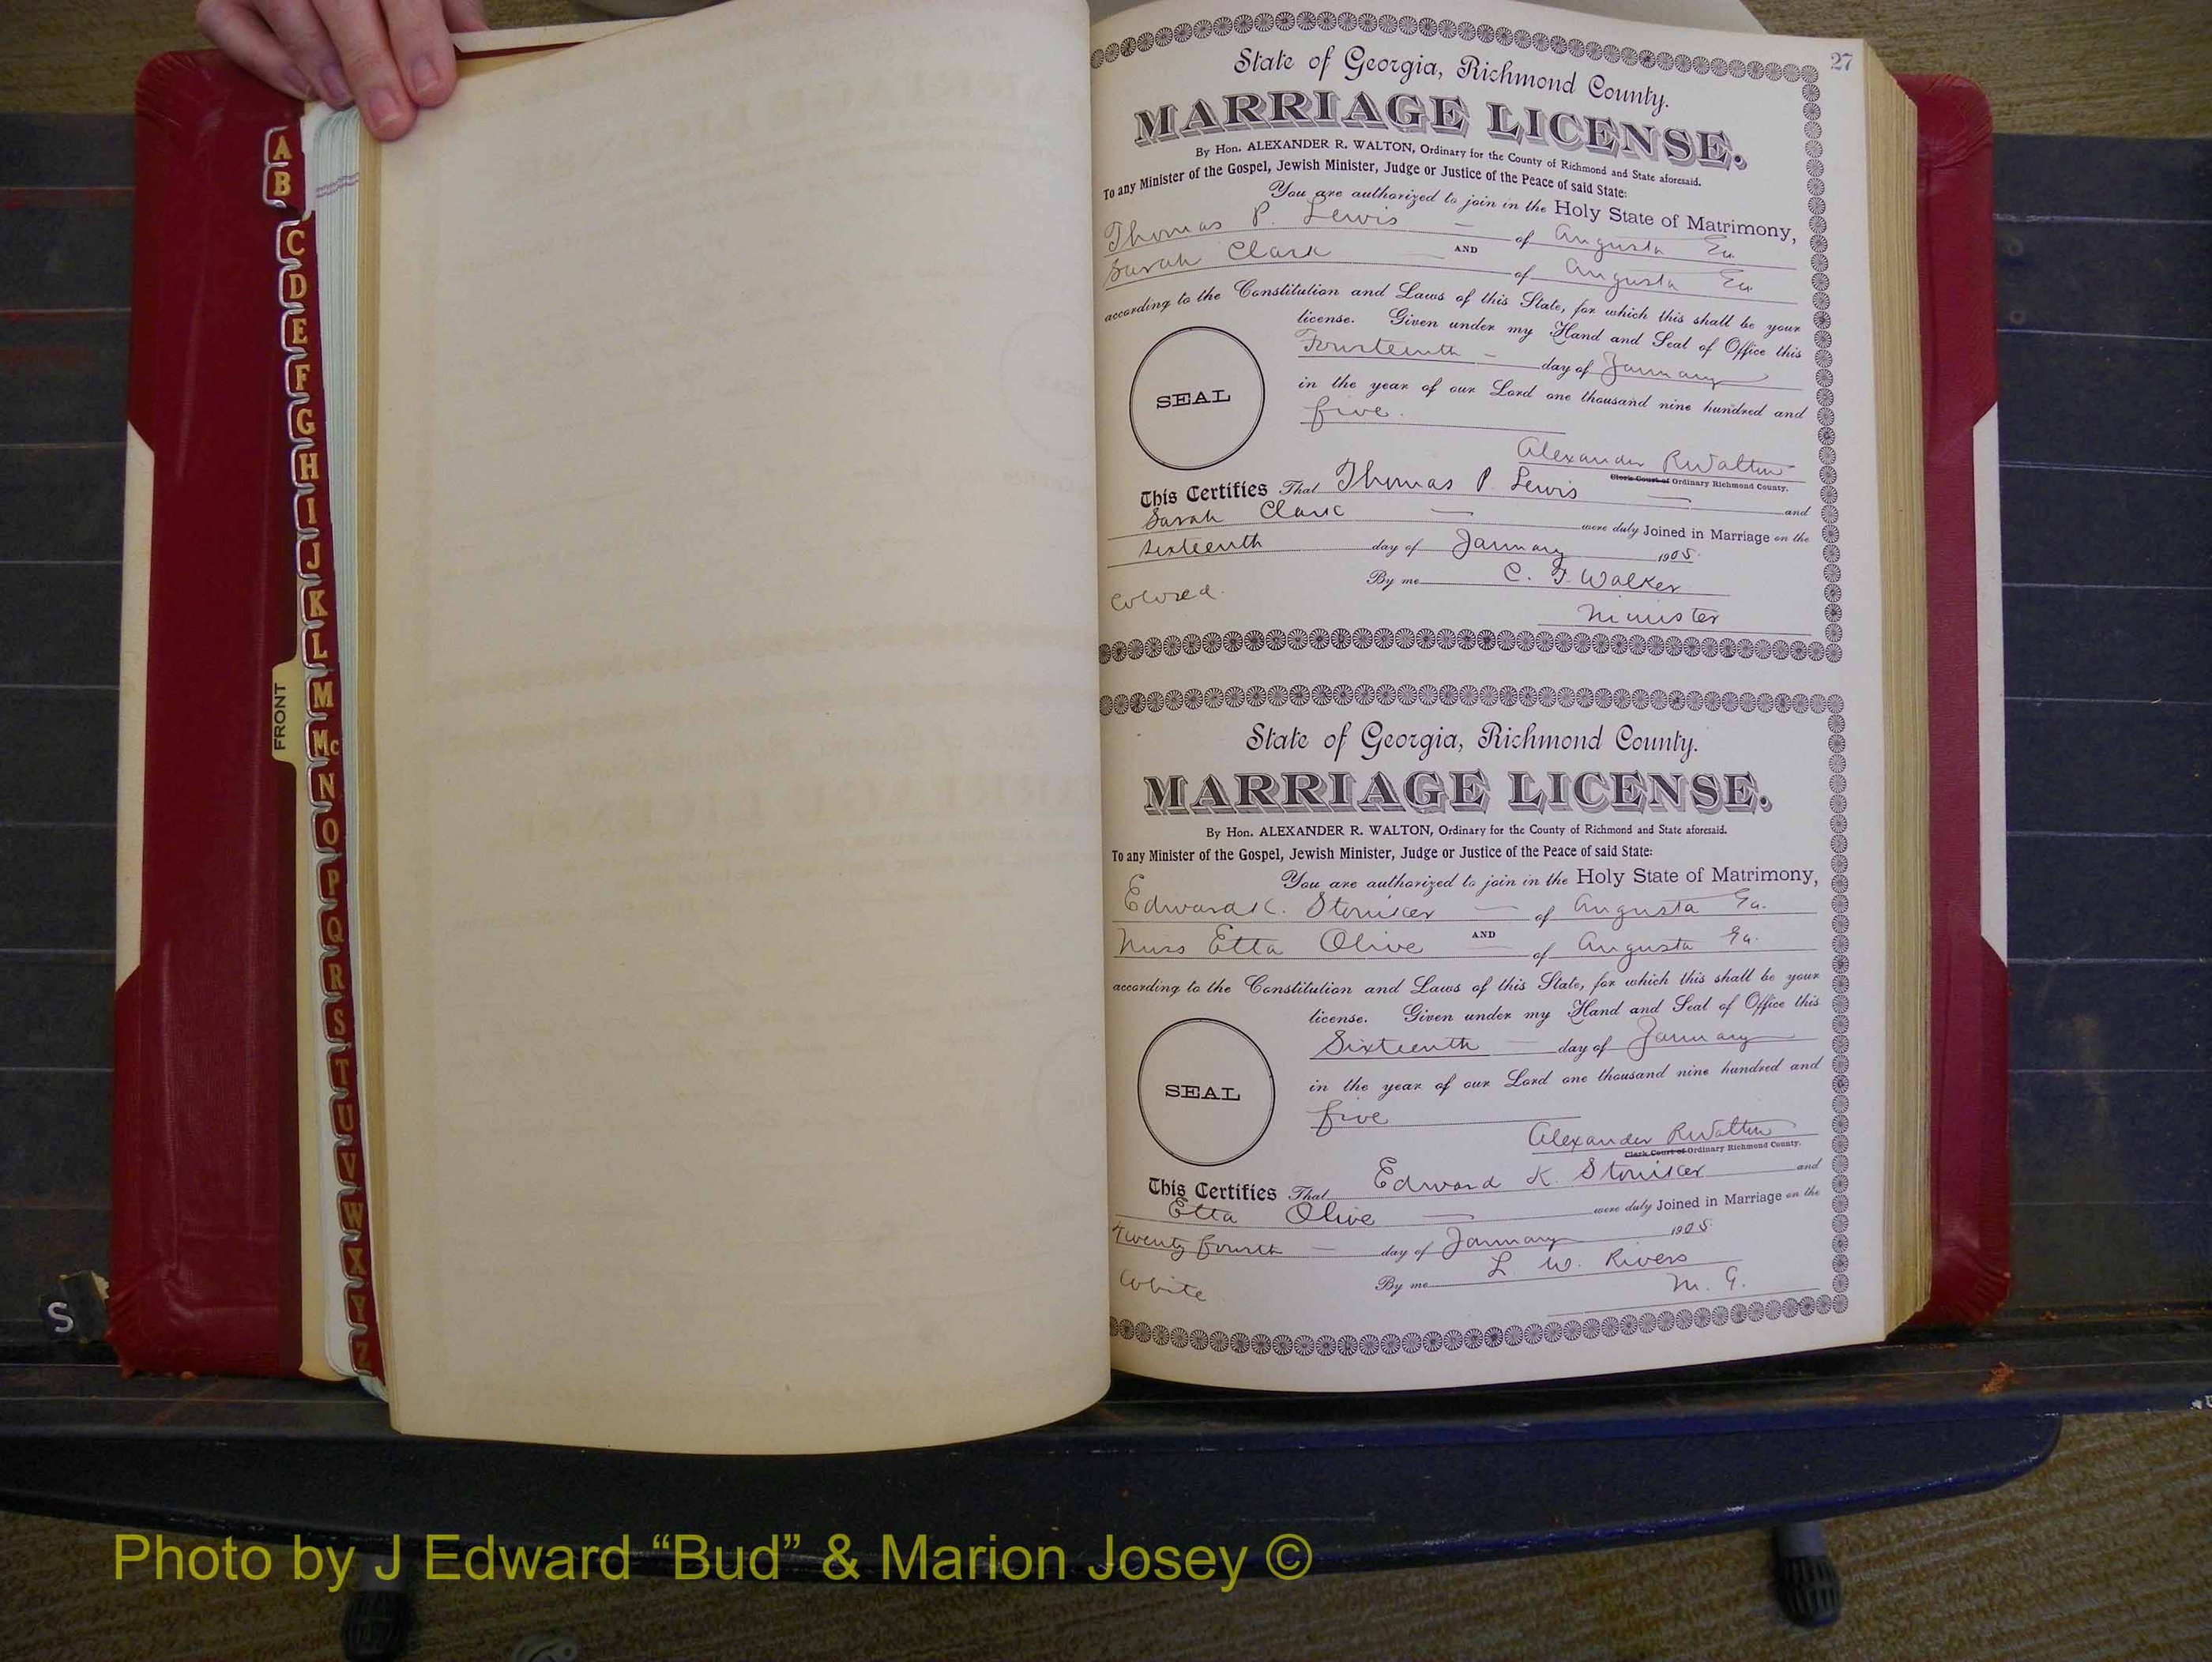 A
B
C
D
E
F
G
H
I
J
K
L
M
Mc
N
O
P
Q
R
S
T
U
V
W
X
Y
Z
FRONT
S
27
State of Georgia, Richmond County.
MARRIAGE LICENSE.
By Hon. ALEXANDER R. WALTON, Ordinary for the County of Richmond and State aforesaid.
To any Minister of the Gospel, Jewish Minister, Judge or Justice of the Peace of said State:
You are authorized to join in the Holy State of Matrimony,
Thomas P. Lewis of Augusta Ga.
AND
Sarah Clark of Augusta Ga.
according to the Constitution and Laws of this State, for which this shall be your
license. Given under my Hand and Seal of Office this
Fourteenth day of January
in the year of our Lord one thousand nine hundred and
five.
SEAL
Alexander R Walton
Clerk Court of Ordinary Richmond County.
This Certifies That Thomas P. Lewis and
Sarah Clark were duly Joined in Marriage on the
Sixteenth day of January 1905.
By me C. T. Walker
Colored. Minister
State of Georgia, Richmond County.
MARRIAGE LICENSE.
By Hon. ALEXANDER R. WALTON, Ordinary for the County of Richmond and State aforesaid.
To any Minister of the Gospel, Jewish Minister, Judge or Justice of the Peace of said State:
You are authorized to join in the Holy State of Matrimony,
Edward K. Stoniker of Augusta Ga.
AND
Miss Etta Olive of Augusta Ga.
according to the Constitution and Laws of this State, for which this shall be your
license. Given under my Hand and Seal of Office this
Sixteenth day of January
in the year of our Lord one thousand nine hundred and
five
SEAL
Alexander R Walton
Clerk Court of Ordinary Richmond County.
This Certifies That Edward K. Stoniker and
Etta Olive were duly Joined in Marriage on the
Twenty fourth day of January 1905.
By me L. W. Rivers
White M. G.
Photo by J Edward “Bud” & Marion Josey ©